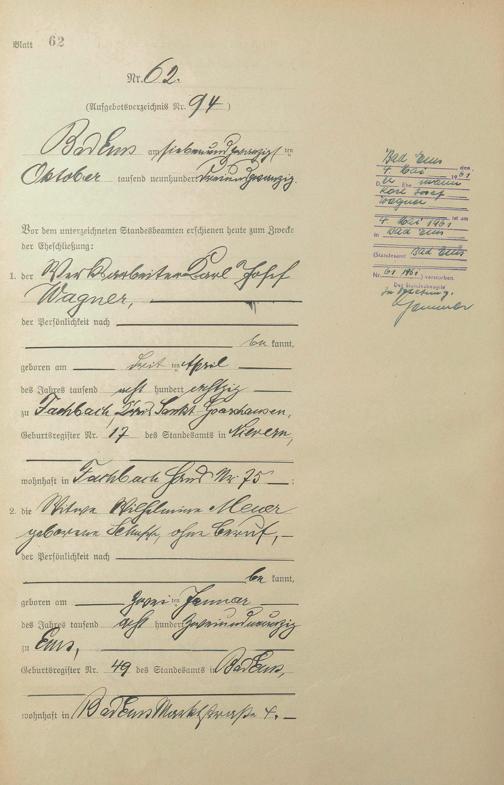 Blatt 62
Nr. 62.
(Aufgebotsverzeichnis Nr. 94)
Bad Ems am siebenundzwanzigsten
Oktober tausend neunhundert dreiundzwanzig.
Vor dem unterzeichneten Standesbeamten erschienen heute zum Zwecke
der Eheschließung:
1. der Werkarbeiter Karl Josef
Wagner,
der Persönlichkeit nach
be kannt,
geboren am ten April
des Jahres tausend acht hundert achtzig
zu Fachbach, Kreis Sankt Goarshausen,
Geburtsregister Nr. 17 des Standesamts in Nievern,
wohnhaft in Fachbach Haus Nr. 75 ;
2. die Witwe Wilhelmine
geborene ohne Beruf,
der Persönlichkeit nach
be kannt,
geboren am zwei ten Januar
des Jahres tausend acht hundert zweiundneunzig
zu Ems,
Geburtsregister Nr. 49 des Standesamts in Bad Ems,
wohnhaft in Bad Ems Marktstraße 4.
Bad Ems den
4. Mai 1961
Karl Josef
Wagner
ist am
4. Mai 1961
in Bad Ems
(Standesamt Bad Ems
Nr. 61/1961) verstorben.
Der Standesbeamte
In Vertretung.